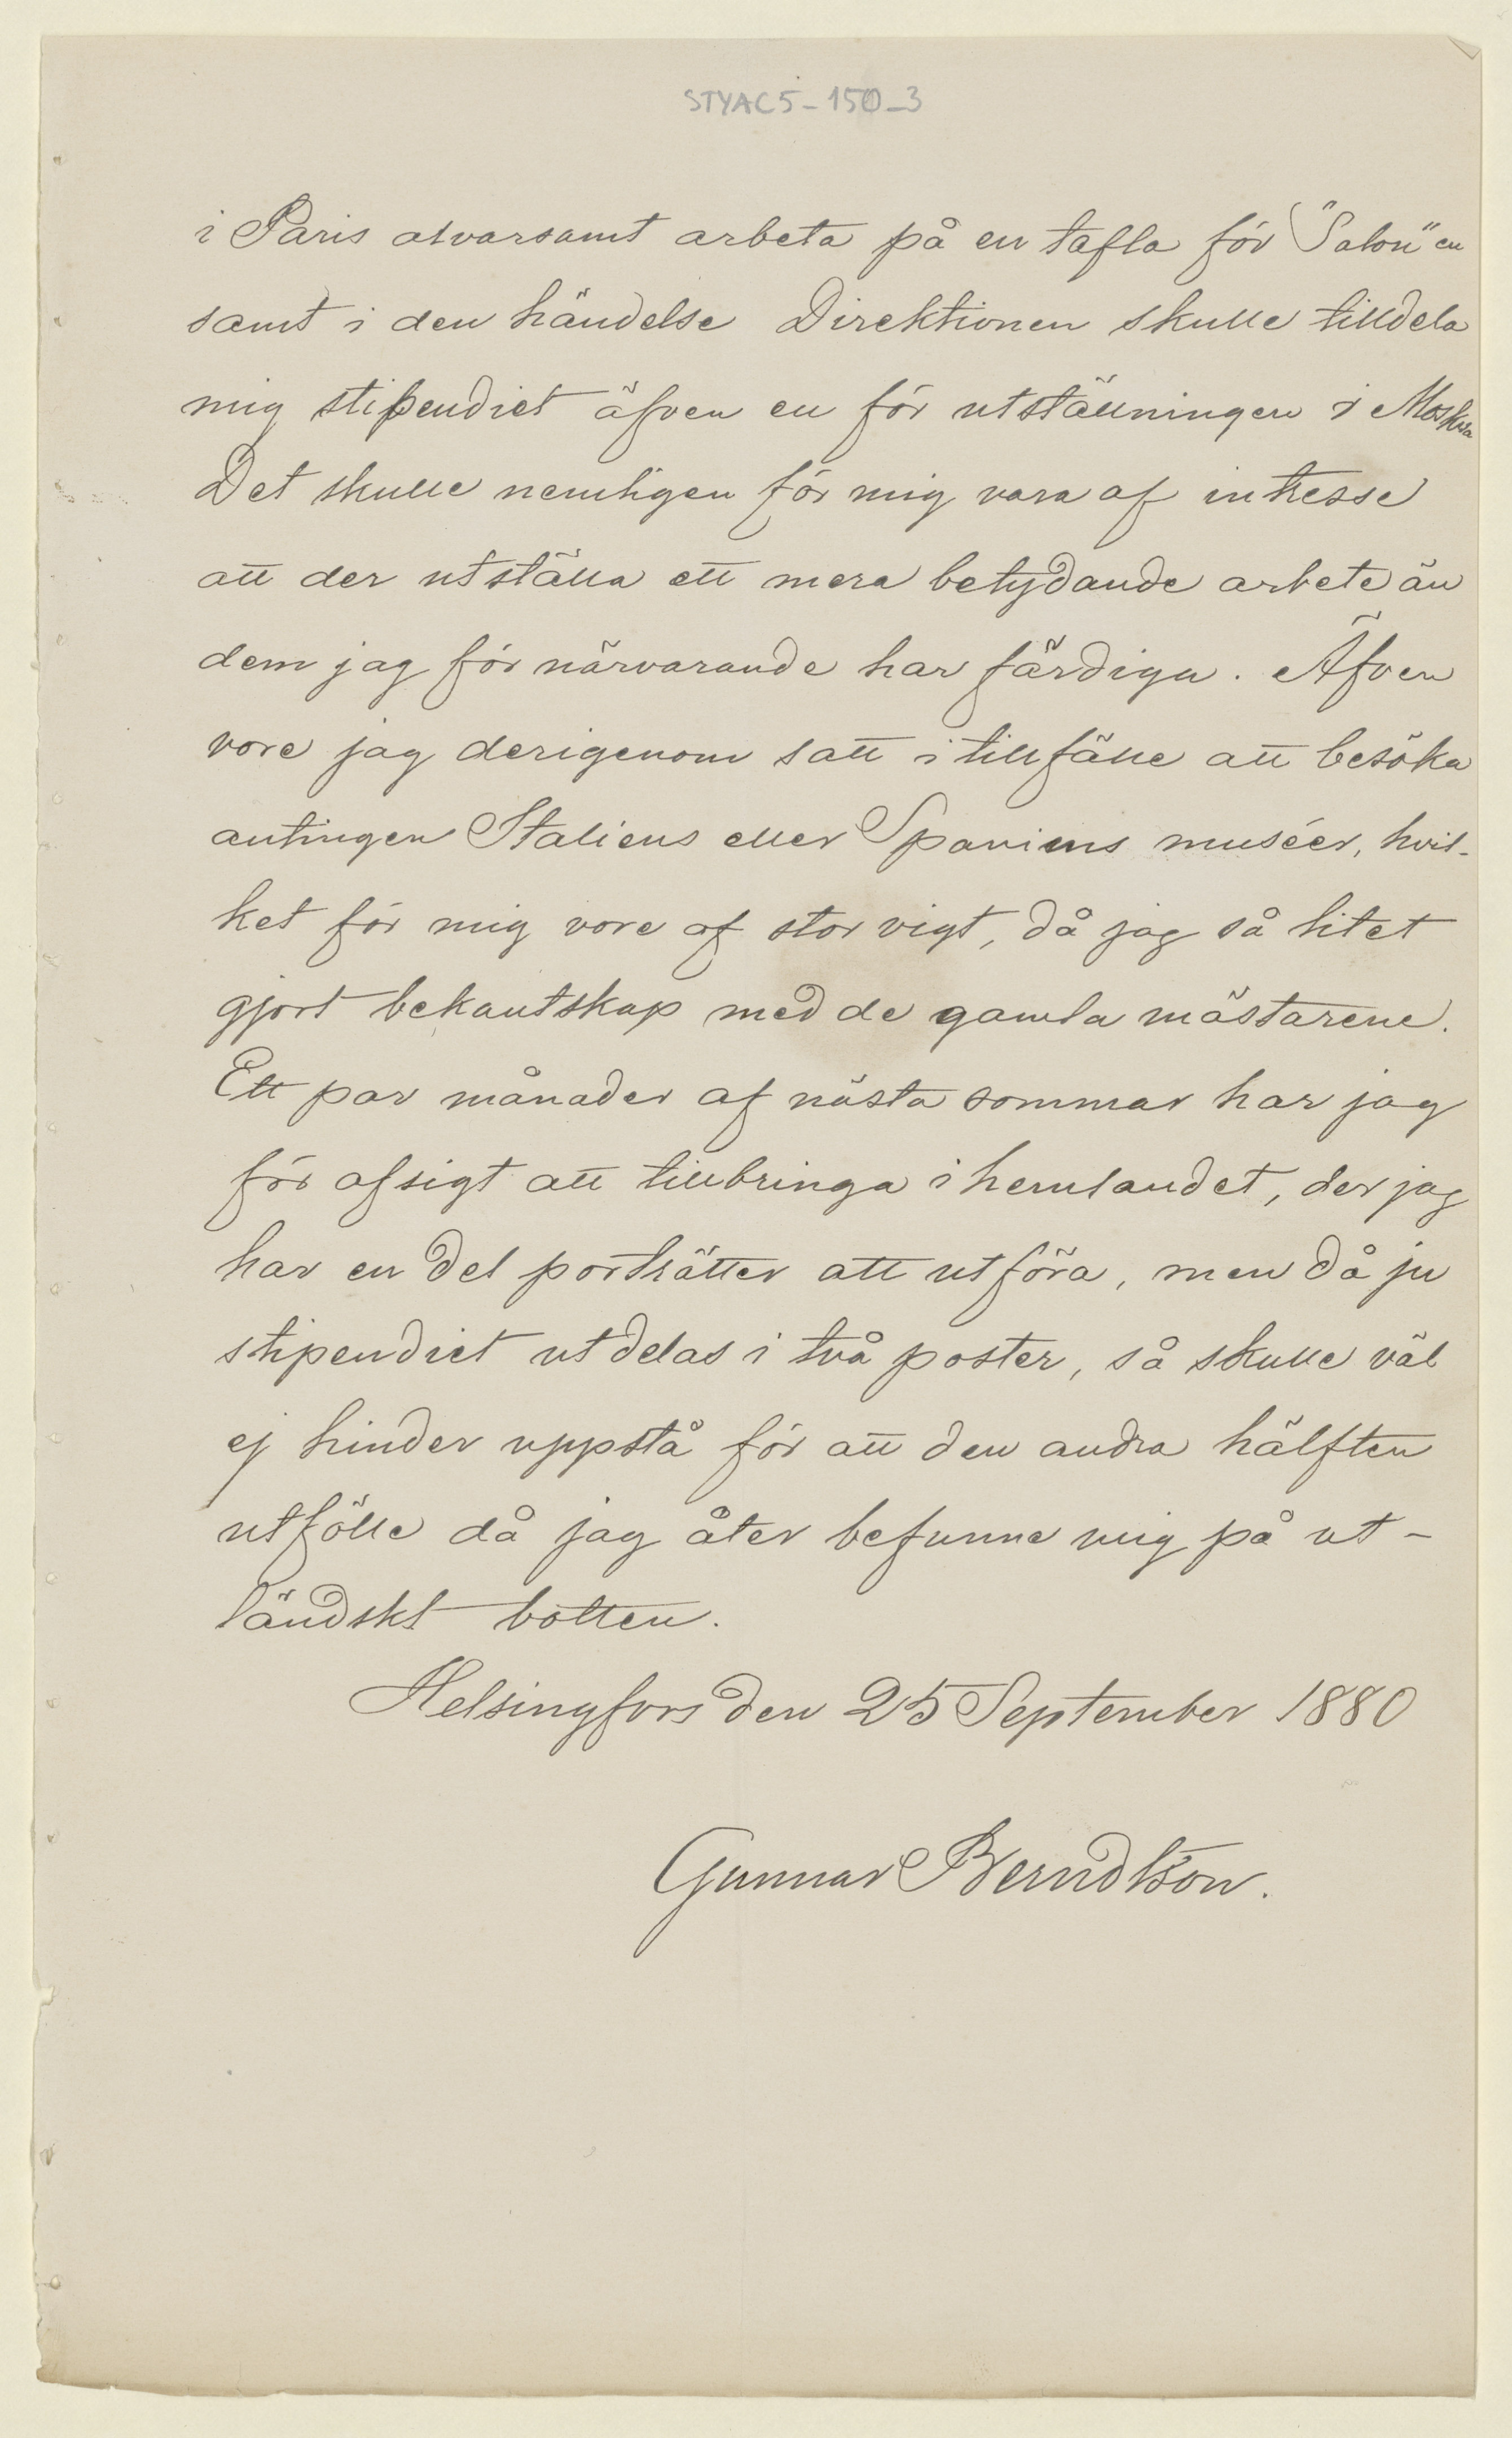 STYAC5-150-3
i Paris alvarsamt arbeta på en tafla för "Salon"en
samt i den händelse Direktionen skulle tilldela
mig stipendiet äfven en för utställningen i Moskva
Det skulle nemligen för mig vara af intresse
att der utställa ett mera betydande arbete än
dem jag för närvarande har färdiga. Äfven
vore jag derigenom satt i tillfälle att besöka
antingen Italiens eller Spaniens muséer, hvil-
ket för mig vore af stor vigt, då jag så litet
gjort bekantskap med de gamla mästarene.
Ett par månader af nästa sommar har jag
för afsigt att tillbringa i hemlandet, der jag
har en del porträtter att utföra, men då ju
stipendiet utdelas i två poster, så skulle väl
ej hinder uppstå för att den andra hälften
utfölle då jag åter befunne mig på ut-
ländskt botten.
Helsingfors den 25 September 1880
Gunnar Berndtson.